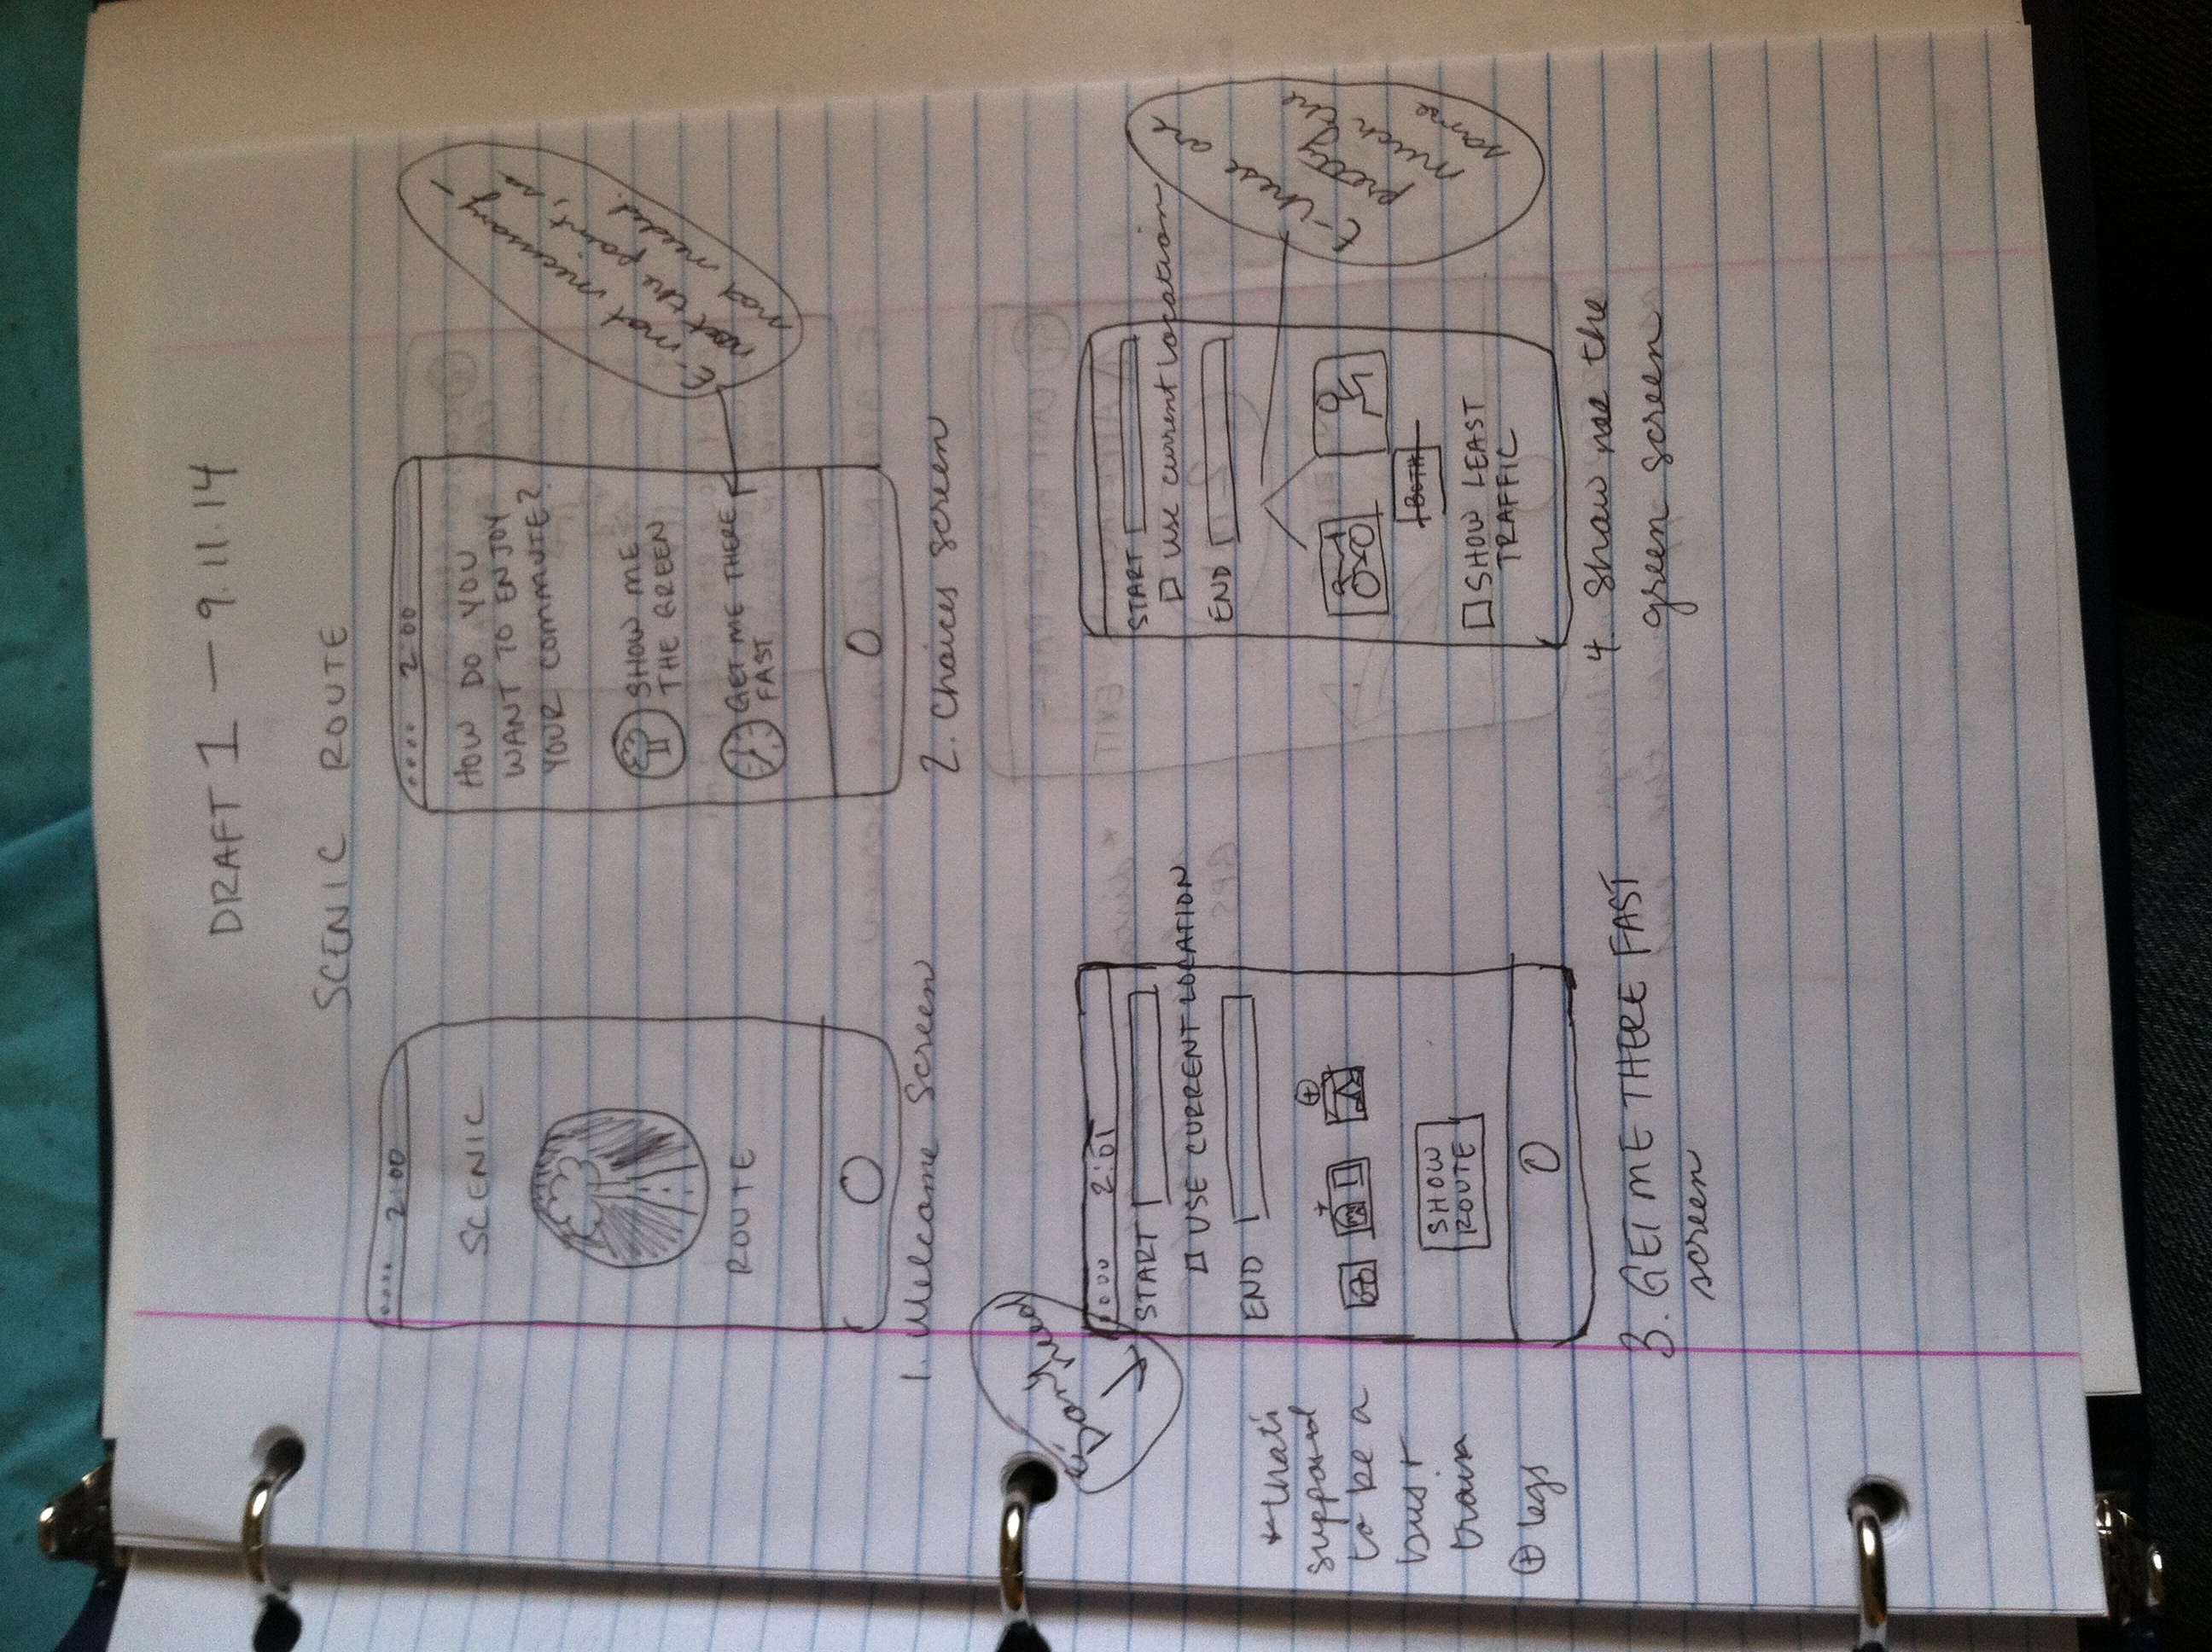 DRAFT 1 — 9.11.14
SCENIC ROUTE
.... 2:00
SCENIC
ROUTE
1. Welcome Screen
.... 2:00
HOW DO YOU
WANT TO ENJOY
YOUR COMMUTE?
SHOW ME
THE GREEN
GET ME THERE
FAST
2. Choices screen
E: not necessary -
not the point, so
not needed.
.000 2:01
START
USE CURRENT LOCATION
END
SHOW
ROUTE
3. GET ME THERE FAST
screen
* that's
supposed
to be a
bus +
train
⊕ legs
START
use current location
END
BOTH
SHOW LEAST
TRAFFIC
4. Show me the
green screen
E: these are
pretty
much the
same